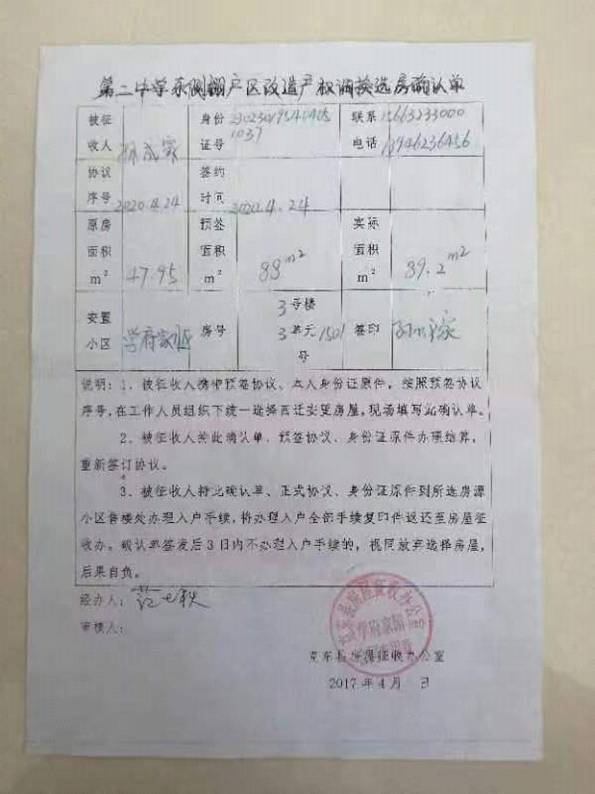 第二中学东侧棚户区改造产权调换选房确认单
被征收人 孙成家 身份证号 联系电话 15663233000
18946236456
协议序号 2020.4.24 签约时间 2020.4.24
原房面积m² 47.95 预签面积m² 88m² 实际面积m² 89.2m²
安置小区 学府家园 房号 3号楼
3单元1501
号 签印
说明：1、被征收人携带预签协议、本人身份证原件，按照预签协议
序号，在工作人员组织下统一选择回迁安置房屋，现场填写此确认单。
2、被征收人持此确认单、预签协议、身份证原件办理结算，
重新签订协议。
3、被征收人持此确认单、正式协议、身份证原件到所选房源
小区售楼处办理入户手续，将办理入户全部手续复印件返还至房屋征
收办。确认单签发后3日内不办理入户手续的，视同放弃选择房屋，
后果自负。
经办人：
审核人：
房屋征收办公室
2017年4月 日